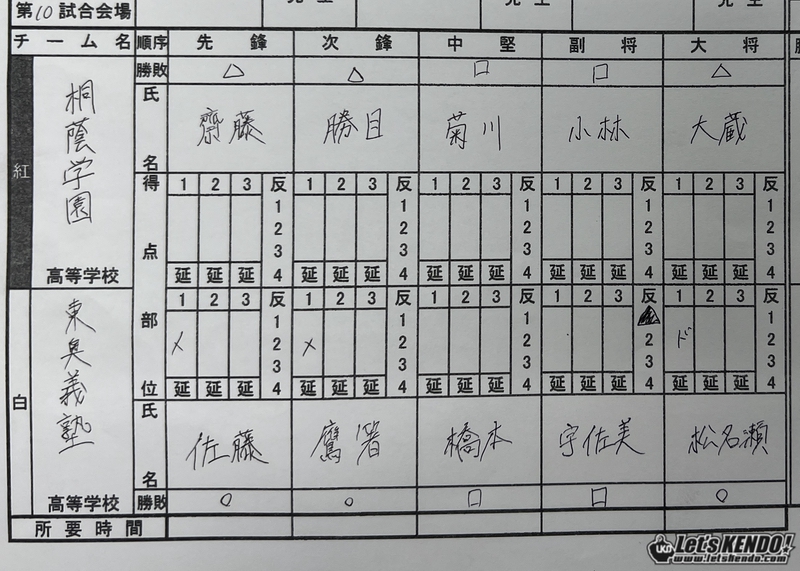 第10試合会場
チーム名 順序 先鋒 次鋒 中堅 副将 大将
勝敗 △ △ □ □ △
紅 桐蔭学園 高等学校
氏名 齋藤 勝目 菊川 小林 大蔵
得点部位
1 2 3 反 1 2 3 反 1 2 3 反 1 2 3 反 1 2 3 反
1 2 3 4 1 2 3 4 1 2 3 4 1 2 3 4 1 2 3 4
延 延 延 延 延 延 延 延 延 延 延 延 延 延 延
白 東奥義塾 高等学校
1 2 3 反 1 2 3 反 1 2 3 反 1 2 3 反 1 2 3 反
メ メ ド
1 2 3 4 1 2 3 4 1 2 3 4 2 3 4 1 2 3 4
延 延 延 延 延 延 延 延 延 延 延 延 延 延 延
氏名 佐藤 鷹箸 橋本 宇佐美 松名瀬
勝敗 ○ ○ □ □ ○
所要時間
LKN Let's KENDO!
www.letskendo.com